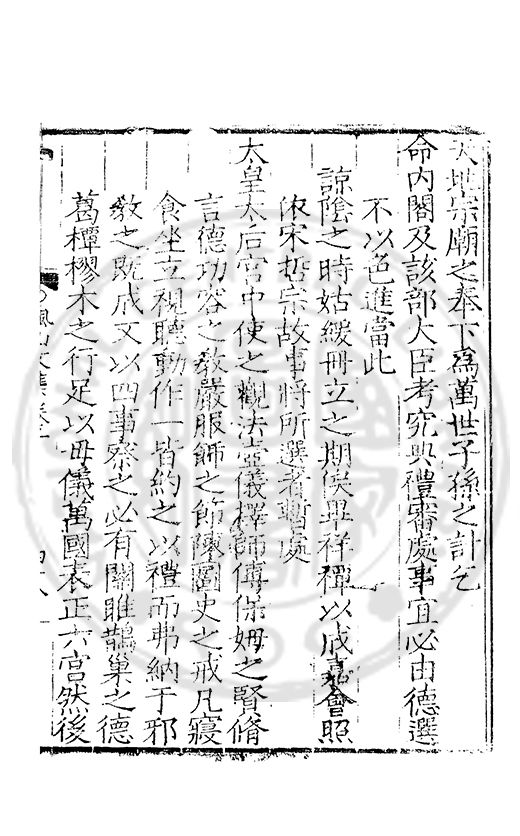 天地宗廟之奉下為萬世子孫之計乞
命內閣及該部大臣考究典禮審處事宜必由德選
不以色進當此
諒陰之時姑緩冊立之期俟畢祥禫以成嘉會照
依宋哲宗故事將所選者暫處
太皇太后宮中使之觀法壼儀擇師傅保姆之賢脩
言德功容之教嚴服飾之節陳圖史之戒凡寢
食坐立視聽動作一皆約之以禮而弗納于邪
教之既成又以四事察之必有關雎鵲巢之德
葛樛木之行足以母儀萬國表正六宮然後